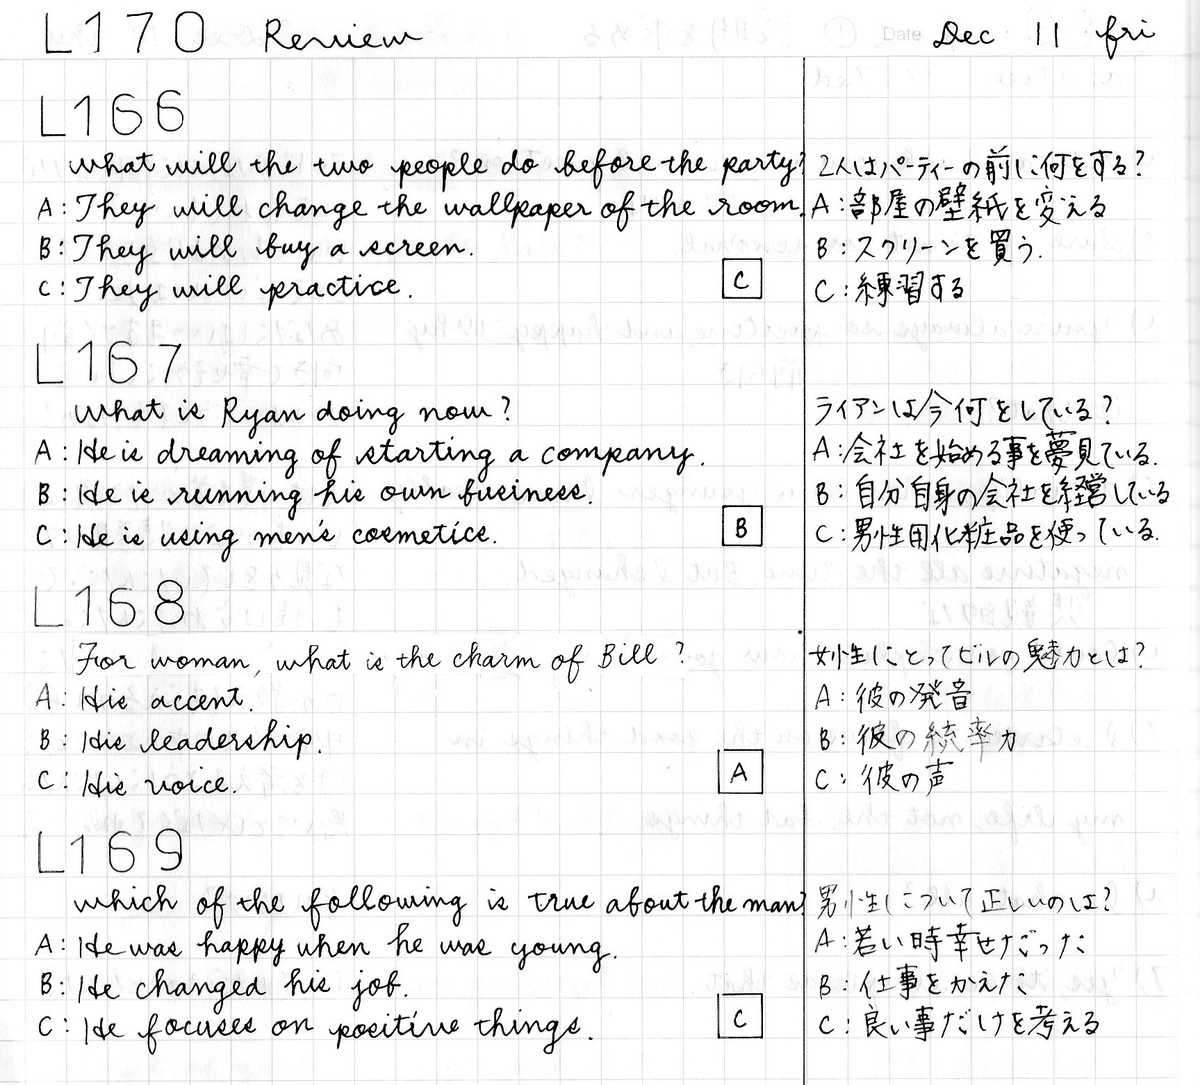 L170 Review Date Dec 11 fri
L166
What will the two people do before the party? 2人はパーティーの前に何をする?
A: They will change the wallpaper of the room. A: 部屋の壁紙を変える
B: They will buy a screen. B: スクリーンを買う.
C: They will practice. C C: 練習する
L167
What is Ryan doing now? ライアンは今何をしている?
A: He is dreaming of starting a company. A: 会社を始める事を夢見ている.
B: He is running his own business. B: 自分自身の会社を経営している
C: He is using men's cosmetics. B C: 男性用化粧品を使っている.
L168
For woman, what is the charm of Bill? 女性にとってビルの魅力とは?
A: His accent. A: 彼の発音
B: His leadership. B: 彼の統率力
C: His voice. A C: 彼の声
L169
which of the following is true about the man? 男性について正しいのは?
A: He was happy when he was young. A: 若い時幸せだった
B: He changed his job. B: 仕事をかえた
C: He focuses on positive things. C C: 良い事だけを考える